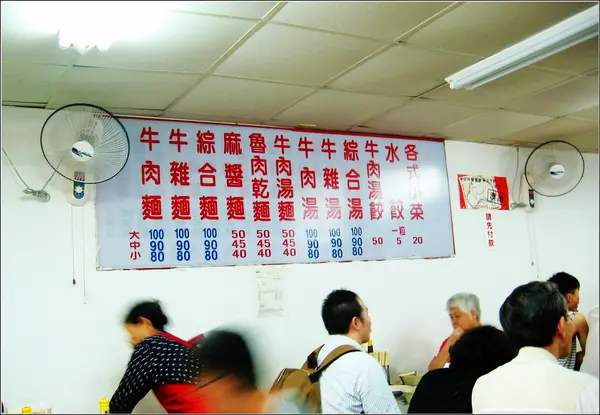 牛肉麵
牛雜麵
綜合麵
麻醬麵
魯肉乾麵
牛肉湯麵
牛肉湯
牛雜湯
綜合湯
牛肉湯餃
水餃
各式小菜
大 100 100 100 50 50 50 100 100 100
中 90 90 90 45 45 45 90 90 90 50 一粒5 20
小 80 80 80 40 40 40 80 80 80
請先付款